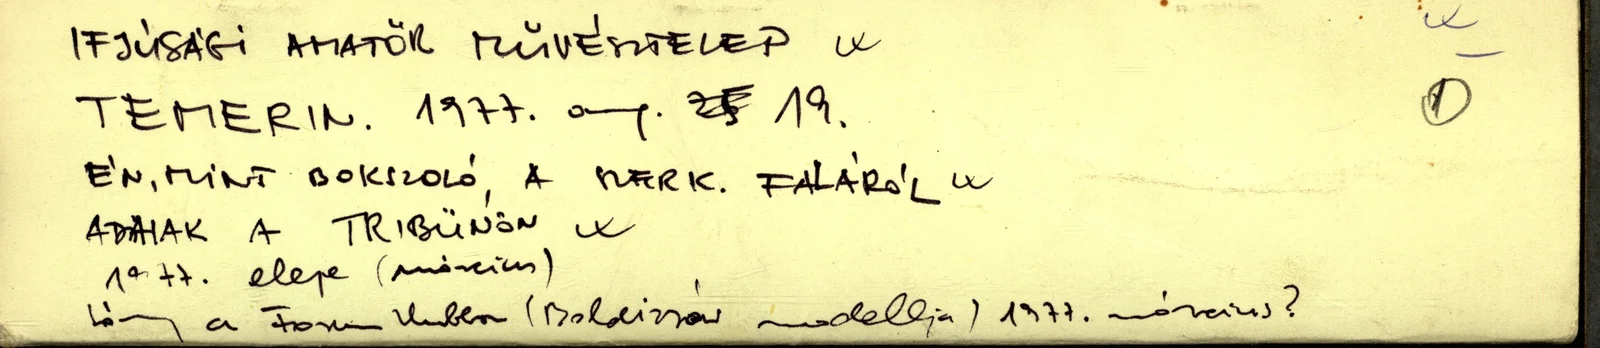 IFJÚSÁGI AMATŐR MŰVÉSZTELEP
TEMERIN. 1977. aug. 19.
ÉN, MINT BOKSZOLÓ, A SZERK. FALÁRÓL
ADAIAK A TRIBÜNÖN
1977. eleje (március)
Lány a Forum klubban (Boldizsár modellja) 1977. március?
1